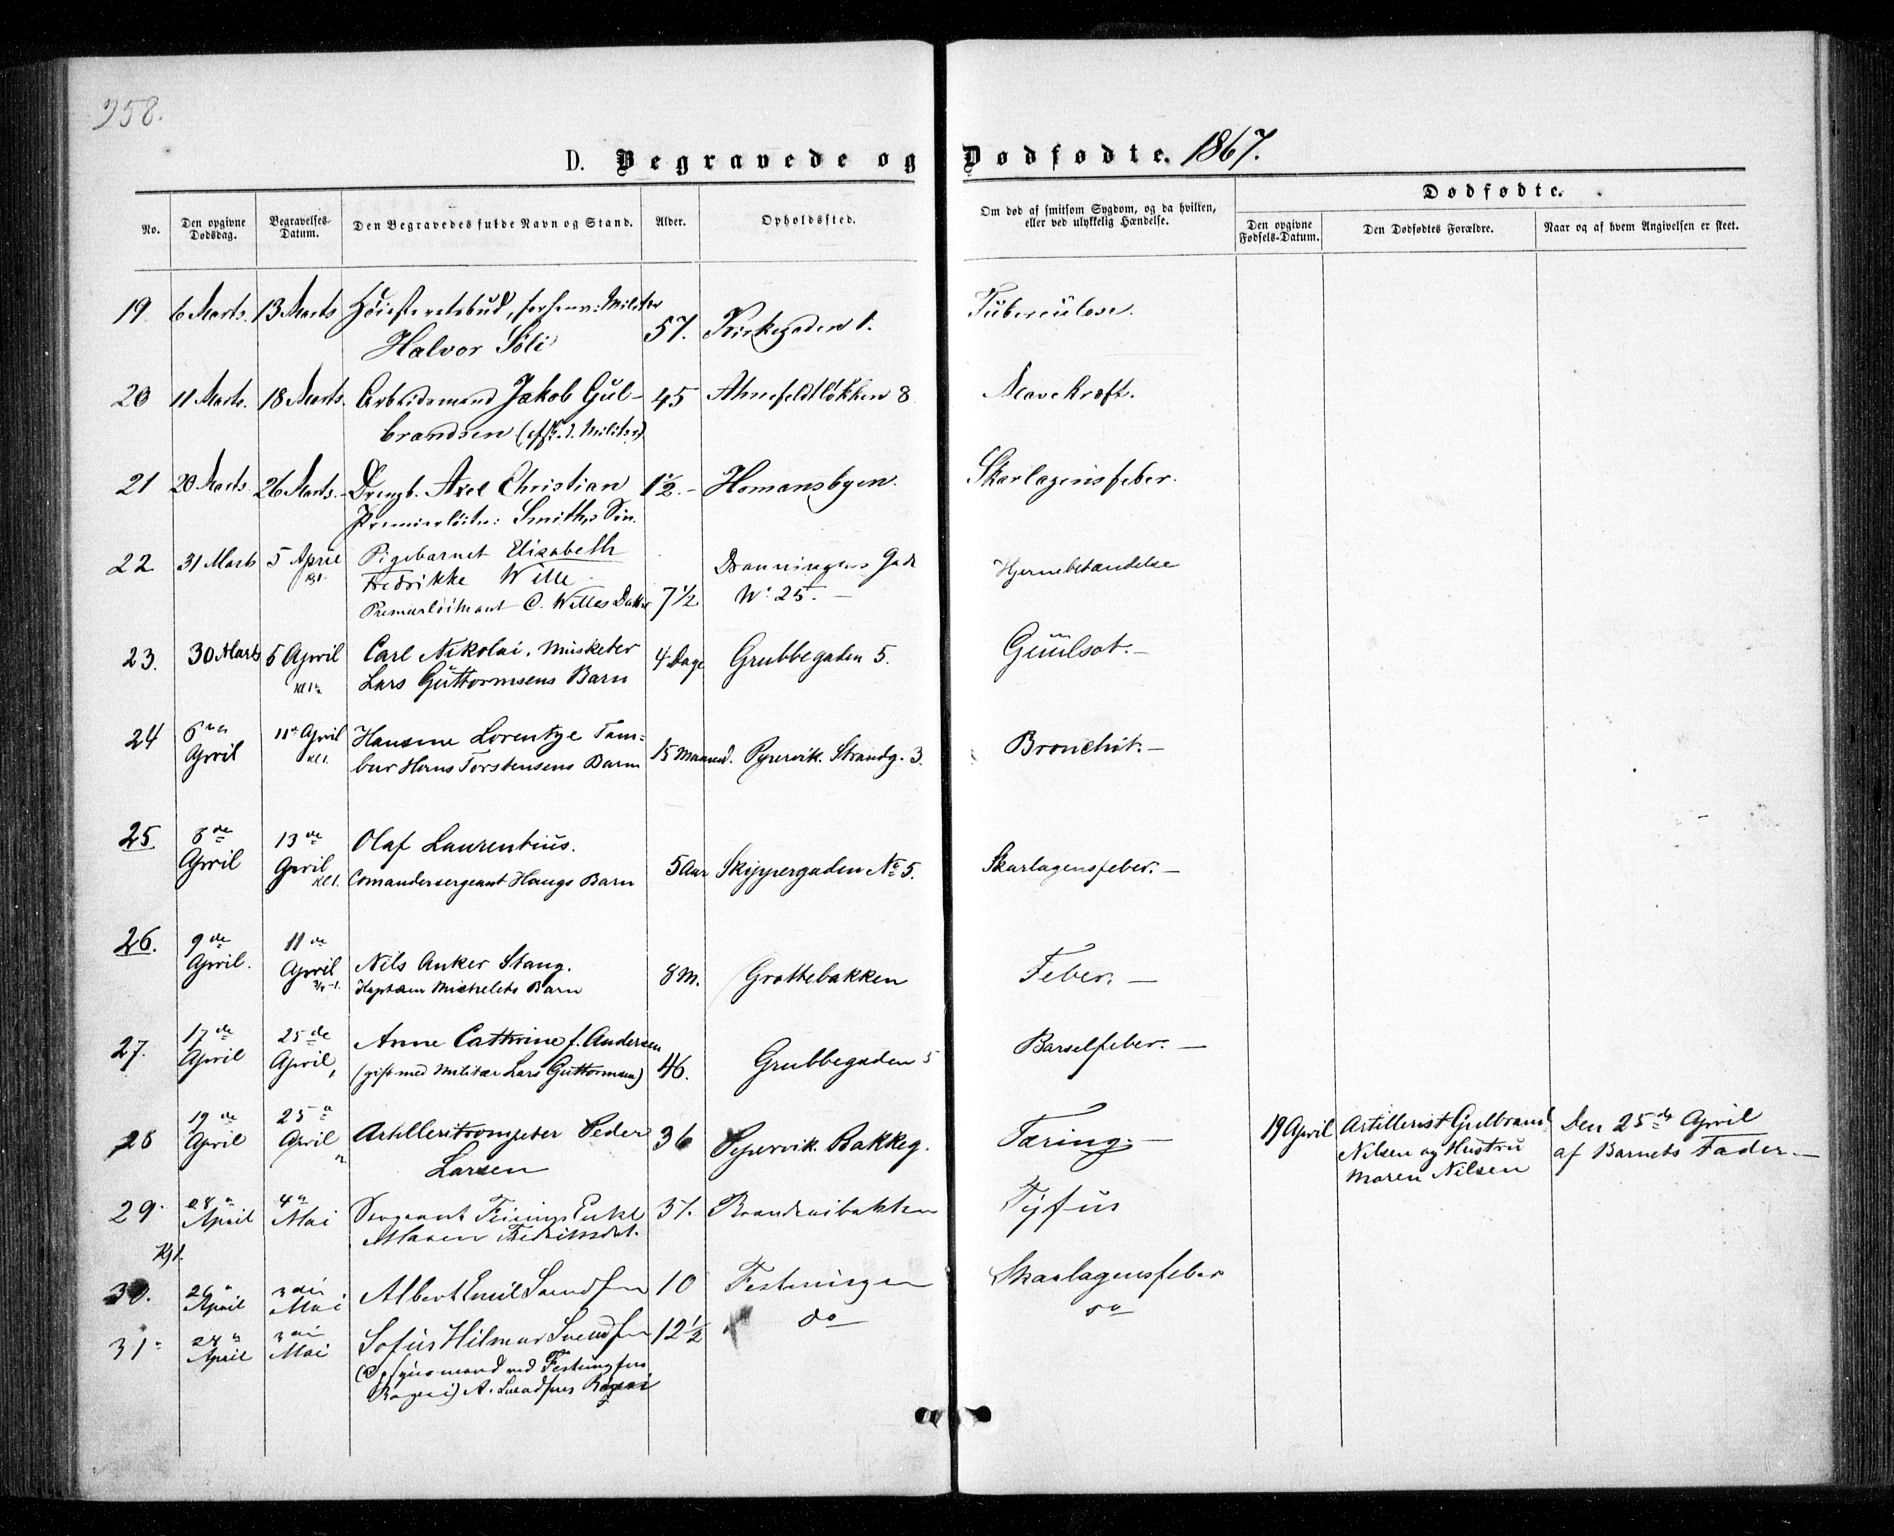 258.
D. Begravede og Dødfødte. 1867.
No.
Den opgivne Dødsdag.
Begravelses-Datum.
Den Begravedes fulde Navn og Stand.
Alder.
Opholdssted.
Om død af smitsom Sygdom, og da hvilken, eller ved ulykkelig Hændelse.
Dødfødte.
Den opgivne Fødsels-Datum.
Den Dødfødtes Forældre.
Naar og af hvem Angivelsen er skeet.
19 6 Marts. 13 Marts Høiesteretsbud, Militær
Halvor Søli 57. Kirkegaden 1. Tuberculose.
20 11 Marts. 18 Marts. Arbeidsmand Jakob Gul-
brandsen Militær) 45 Ahnefeldtløkken 8 Mavekræft.
21 20 Marts 26 Marts. Drengb. Axel Christian 1½. Homansbyen. Skarlagensfeber.
Premierløitn: Smiths Søn.
22 31 Marts 5 April Pigebarnet Elisabeth
Kl 1. Fredrikke Wille Dronningens Gade Hjernebetændelse
Premierløitnant C. Willes Datter 7½ No 25. —
23. 30 Marts 5 April Carl Nikolai, Musketer 4 Dage Grubbegaden 5. Guulsot. —
Lars Guttormsens Barn
24 6 April 11te April Kl 1. Hansine Lorentze Tam-
bur Hans Torstensens Barn 15 Maaned. Pipervik. Strandg. 3. Bronchit. —
25. 8de April 13de April Kl 1. Olaf Laurentius.
Comandersergeant Haugs Barn 5 Aar Skippergaden No 5. Skarlagensfeber. —
26. 9de April. 11de April Nils Anker Stang.
Kaptein Michelets Barn 8 M. Grottebakken Feber. —
27. 17de April 25de April, Anne Cathrine f. Andersen
(gift med Militær Lars Guttormsen) 46. Grubbegaden 5 Barselfeber. —
28 19de April 25 April Artilleritrompeter Peder
Larsen 36 Pipervik. Bakkeg. Tæring. — 19 April Artillerist Gulbrand
Nilsen og Hustru
Maren Nilsen Den 25de April
af Barnets Fader. —
29. 28 April 4 Mai Sergeant Enke
Maren 37. Tyfus
Kl 1.
30. 26 April 3die Mai Albert Emil Svendsen 10 Festningen Skarlagensfeber
31 27 April 3die Mai Sofus Hilmar Svendsen 12½ do — do
(Opsynsmand ved Festningens
Bageri) A. Svendsens